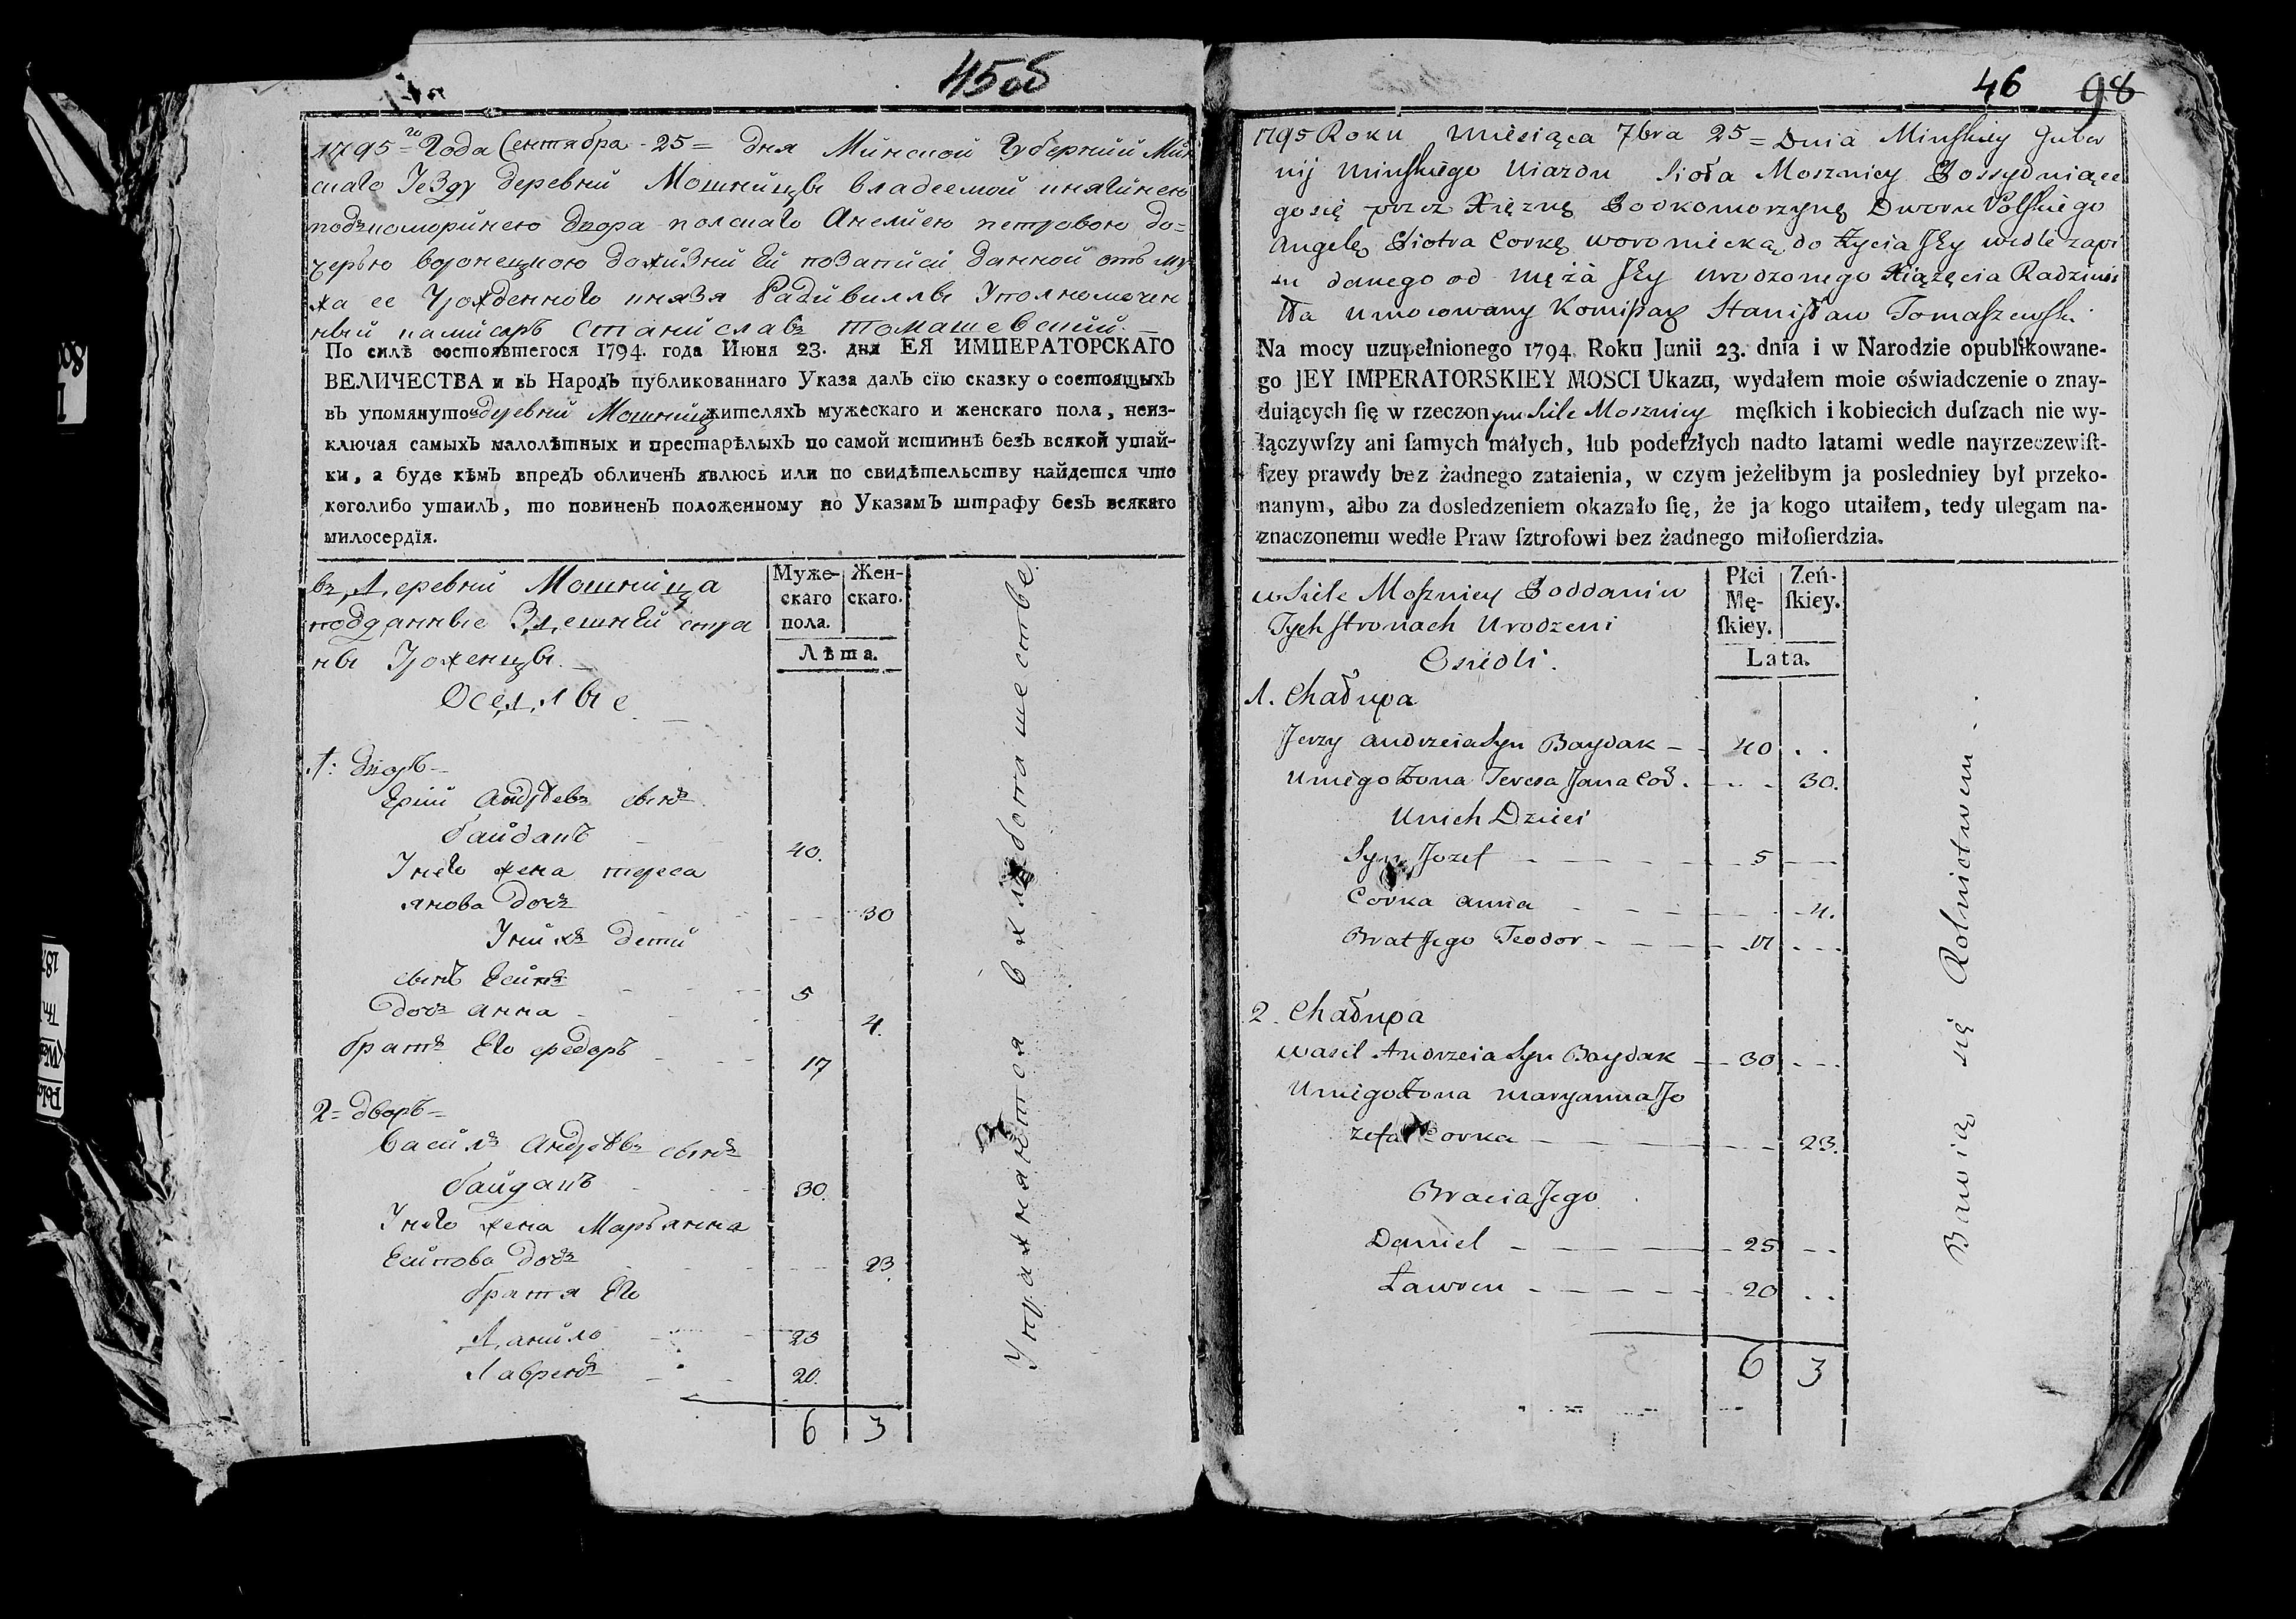 45об
1795го Года Сентября 25 = дня Минской Губернии Мин
скаго Уезду деревни Мошницы владеемой княгинею
подкоморинею двора полскаго Анелиею петровою до=
черью воронецкою дожизни Ей позаписи данной отъ му
жа ее Урожденного князя Радивиллы Уполномочен
ный камисаръ Станиславъ Томашевский
По силѣ состоявшегося 1794. года Июня 23. дня ЕЯ ИМПЕРАТОРСКАГО
ВЕЛИЧЕСТВА и въ Народъ публикованнаго Указа далъ сїю сказку о состоящыхъ
въ упомянутой деревни Мошницы жителяхъ мужескаго и женскаго пола, неиз-
ключая самыхъ малолѣтныхъ и престарѣлыхъ по самой истиннѣ безъ всякой утай-
ки, а буде кѣмъ впредъ обличенъ явлюсь или по свидѣтельству найдется что
коголибо утаилъ, то повиненъ положенному по Указамъ штрафу безъ всякаго
милосердїя.
въ Деревни Мошница
подданные Здешней стра
ны Уроженцы
Оседлые
Муже-
скаго
пола.
Жен-
скаго.
Лѣта.
1: дворъ
Ерий Андреевъ сынъ
байдакъ 40.
У него жена тереса
янова дочь 30
У нихъ дети
сынъ Есипъ 5
дочь анна 4.
братъ Его федоръ 17
2= дворъ=
Василь Андреевъ сынъ
байдакъ 30.
У него жена Марьянна
Есипова дочь 23.
братя Его
Данило 25
Лавренъ 20.
6 3
Упражняются в хлебопашестве
46 98
1795 Roku Miesiąca 7bra 25 = Dnia Minskiey Guber
nij Minskiego Uiazdu Sioła Mosznicy Possyduiące
gosię przez Xiężnę Podkomorzynę Dworu Polskiego
Angelę Piotra Corkę woroniecką do Życia Jey wedle zapi
su danego od Męża Jey urodzonego Xiążęcia Radziwi
łła umocowany Komissarz Stanisław Tomaszewski
Na mocy uzupełnionego 1794 Roku Junii 23. dnia i w Narodzie opublikowane-
go JEY IMPERATORSKIEY MOSCI Ukazu, wydałem moie oświadczenie o znay-
duiących ſię w rzeczonym Siele Mosznicy męſkich i kobiecich duſzach nie wy-
łączywſzy ani ſamych małych, lub podeſzłych nadto latami wedle nayrzeczewiſt-
ſzey prawdy bez żadnego zataienia, w czym jeżelibym ja posledniey był przeko-
nanym, albo za dosledzeniem okazało ſię, że ja kogo utaiłem, tedy ulegam na-
znaczonemu wedle Praw ſztrofowi bez żadnego miłoſierdzia.
w Siele Mosznicy Poddani w
Tych stronach Urodzeni
Osiedli.
Płci
Mę-
ſkiey.
Zeń-
ſkiey.
Lata.
1. Chałupa
Jerzy Andrzeia Syn Baydak 40
U niego Żona Teresa Jana Cor. 30.
U nich Dzieci
Syn Jozef 5
Corka Anna 4.
Brat Jego Teodor 17
2. Chałupa
Wasil Andrzeia Syn Baydak 30
U niego Żona Maryanna Jo
zefa Corka 23.
Bracia Jego
Daniel 25
Ławren 20
6 3
Bawią się Rolnictwem